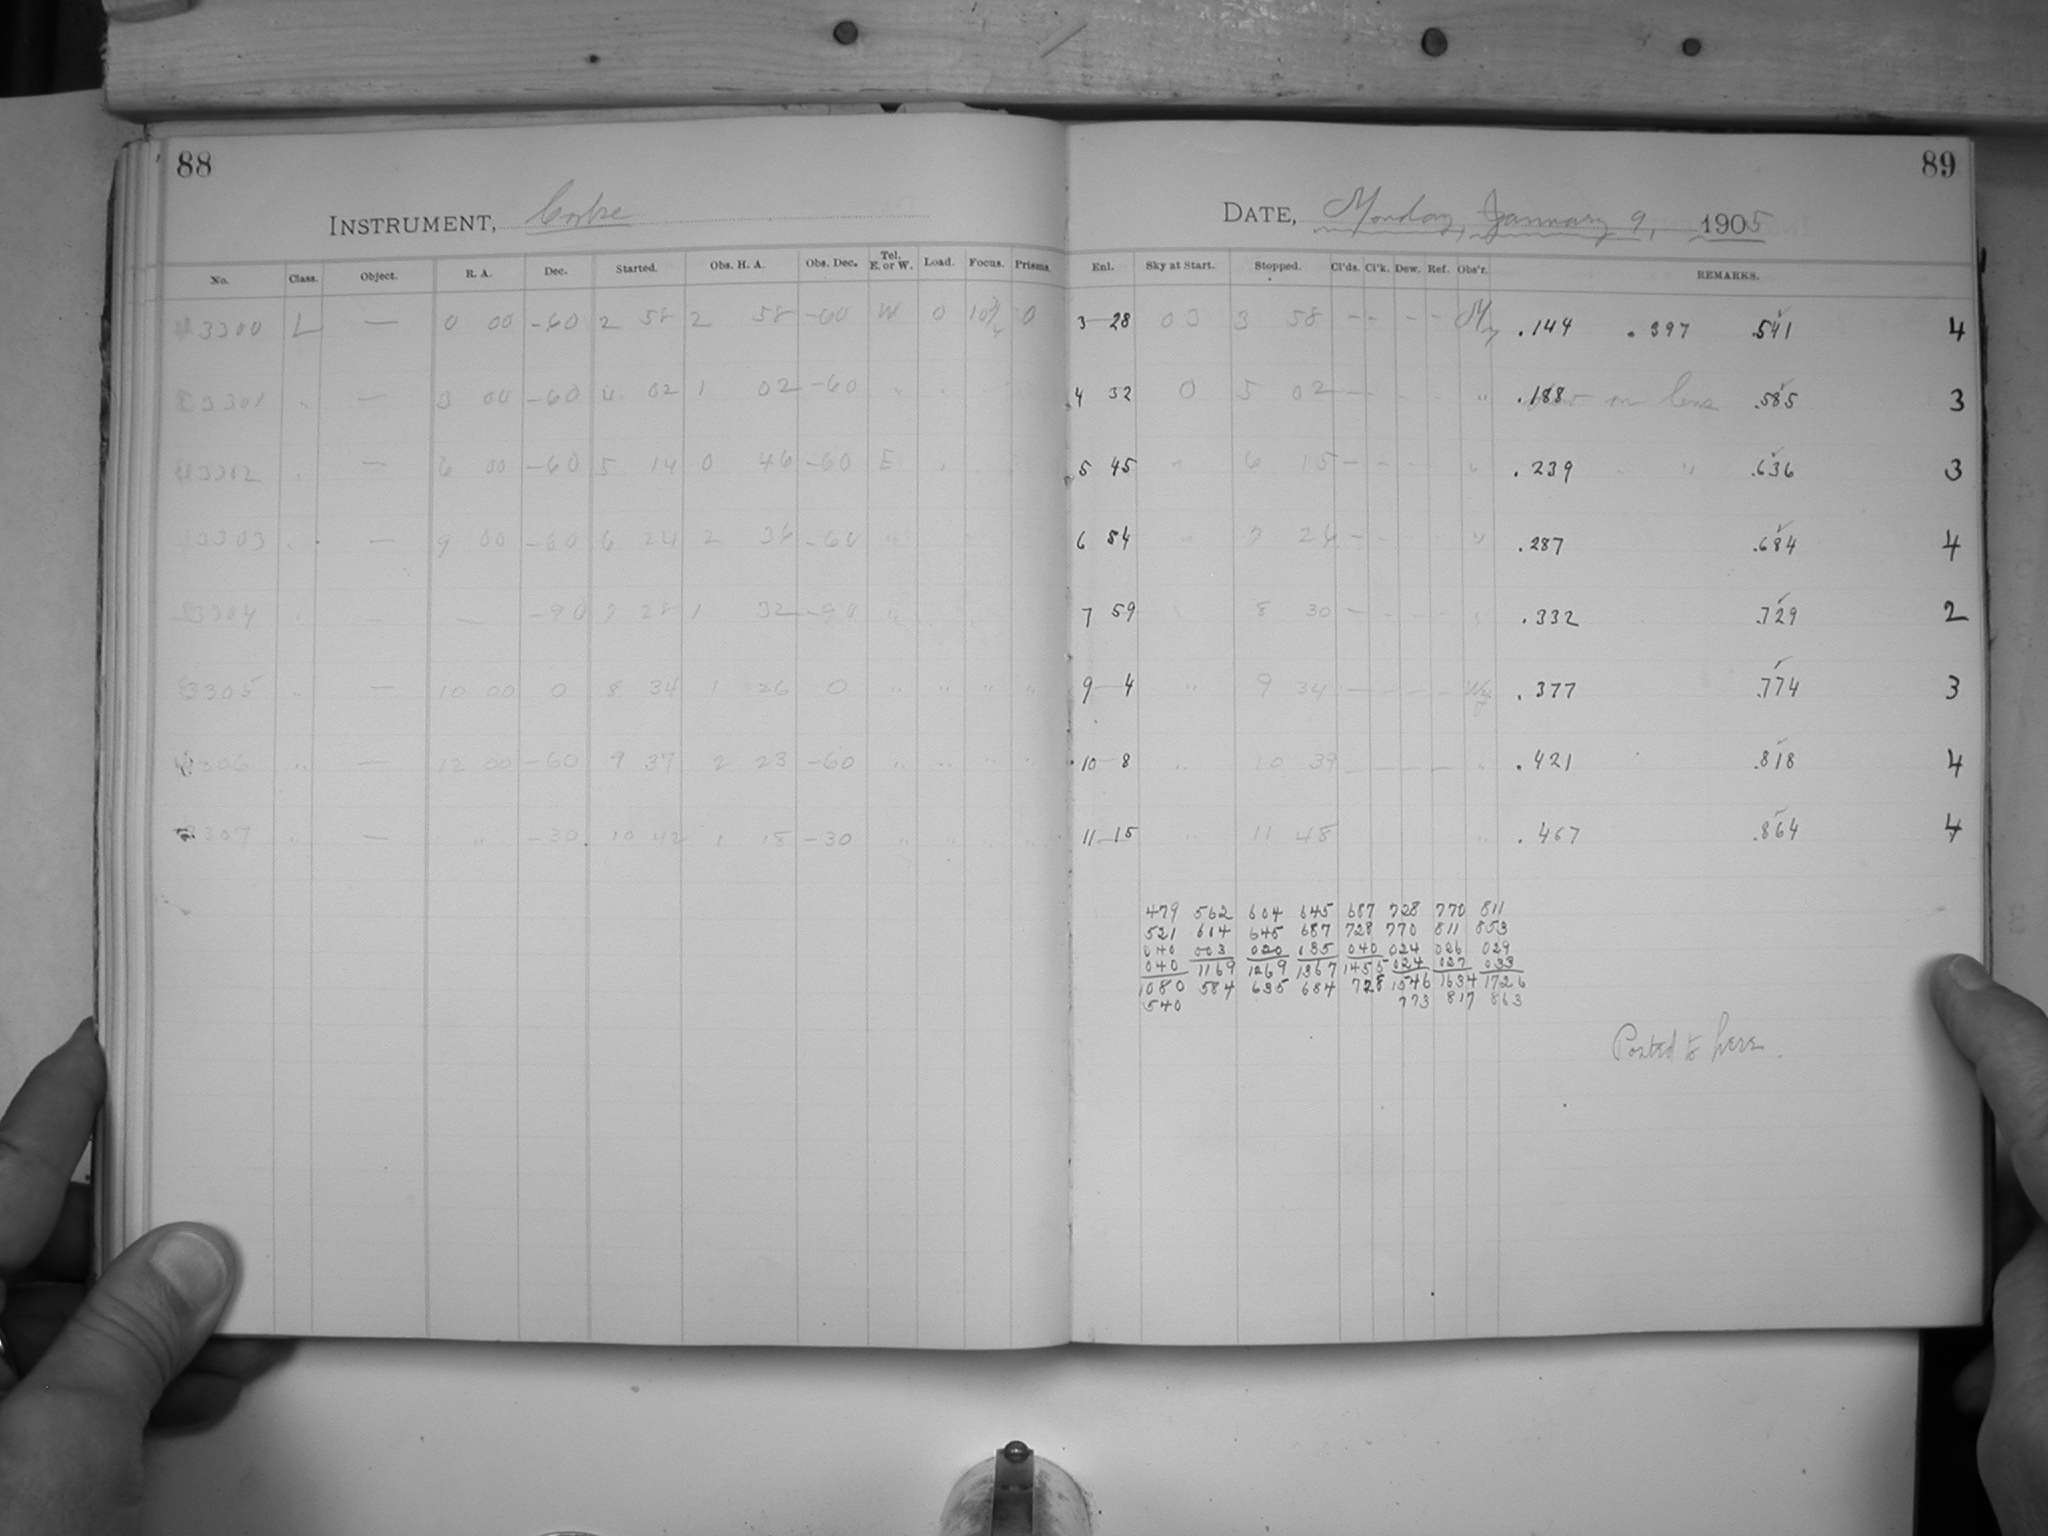 88
INSTRUMENT, Cooke
No. Class. Object. R. A. Dec. Started. Obs. H. A. Obs. Dec. Tel. E. or W. Load. Focus. Prisms.
3300 L — 0 00 -60 2 58 2 58 -60 W 0 0
3301 " — 3 00 -60 4 02 1 02 -60 "
3302 — 6 00 -60 5 14 0 46 -60 E
3303 — 9 00 -60 6 24 2 36 -60 "
3304 — — -90 7 28 1 32 -90 "
3305 " — 10 00 0 8 34 1 26 0 " " " "
3306 " — 12 00 -60 9 37 2 23 -60 " " "
3307 " — " -30 10 42 1 18 -30 " " "
89
DATE, Monday, January 9, 1905
Enl. Sky at Start. Stopped. Cl'ds. Cl'k. Dew. Ref. Obs'r. REMARKS.
3 28 03 3 58 - - - - .144 .397 .541 4
4 32 0 5 02 - - - - " .188 on lens .585 3
5 45 " 6 15 - - - - " .239 " .636 3
6 54 " 7 24 - - - - " .287 .684 4
7 59 8 30 - - - - " .332 .729 2
9 4 " 9 34 - - - - .377 .774 3
10 8 " 10 39 - - - - " .421 .818 4
11 15 " 11 45 " .467 .864 4
479 562 604 645 687 728 770 811
521 604 645 687 728 770 811 853
040 003 020 035 040 024 026 029
040 1169 1269 1367 1455 024 027 033
1080 584 635 684 728 1546 1634 1726
540 773 817 863
Posted to here.